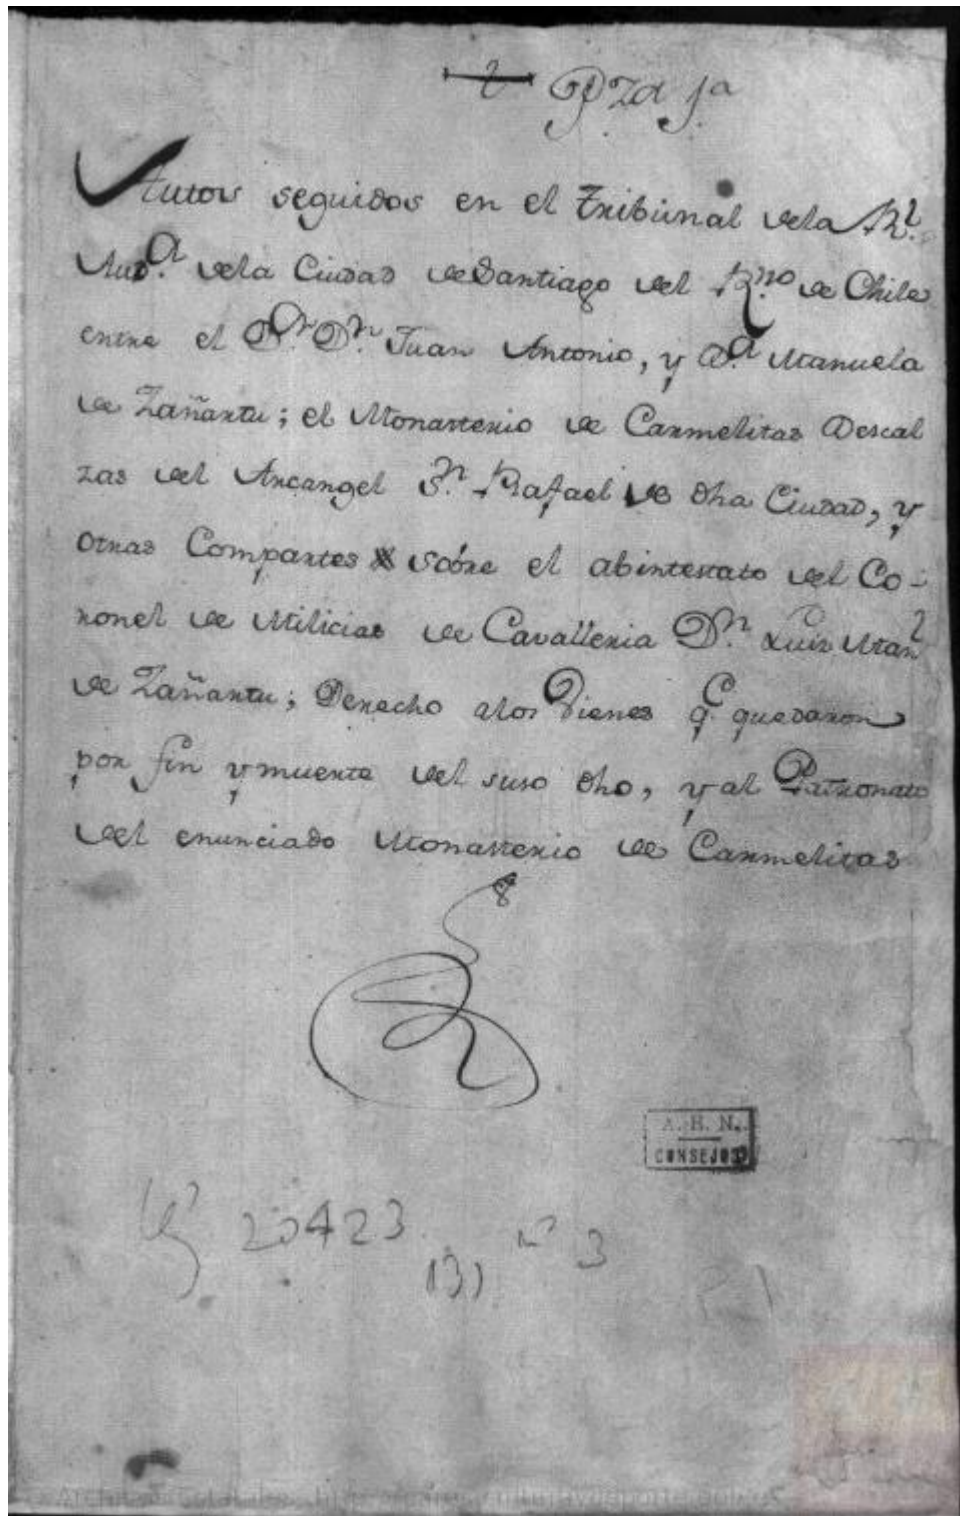 2 Pza 1a
Autos seguidos en el Tribunal dela Rl.
Auda. dela Ciudad deSantiago del Rno. de Chile
entre el Dr. Dn. Juan Antonio, y Da. Manuela
de Zañartu; el Monasterio de Carmelitas Descal
zas del Arcangel Sn. Rafael de dha Ciudad, y
otras Compartes sóbre el abintestato del Co-
ronel de Milicias de Cavalleria Dn. Luis Manl
de Zañartu; Derecho alos Vienes qe. quedaron
por fin ymuerte del suso dho, yal Patronato
del enunciado Monasterio de Carmelitas
A. H. N.
CONSEJOS
Leg 20423 nº 3
(3)